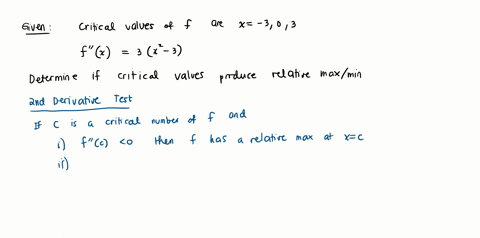 Given: Critical values of f are x = -3, 0, 3
f"(x) = 3(x²-3)
Determine if critical values produce relative max/min
2nd Derivative Test
If C is a critical number of f and
i) f"(c) <0 then f has a relative max at x=c
ii)